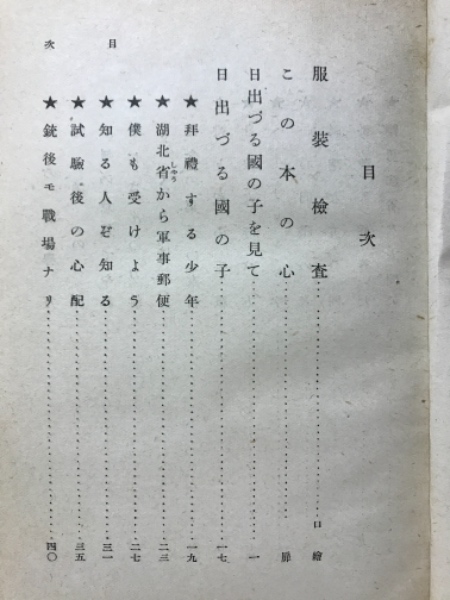 目次
服裝檢査……口繪
この本の心……扉
日出づる國の子を見て……一
日出づる國の子……一七
★拜禮する少年……一九
★湖北省から軍事郵便……二三
しやう
★僕も受けよう……二七
★知る人ぞ知る……三一
★試驗後の心配……三五
★銃後モ戰場ナリ……四〇
目次